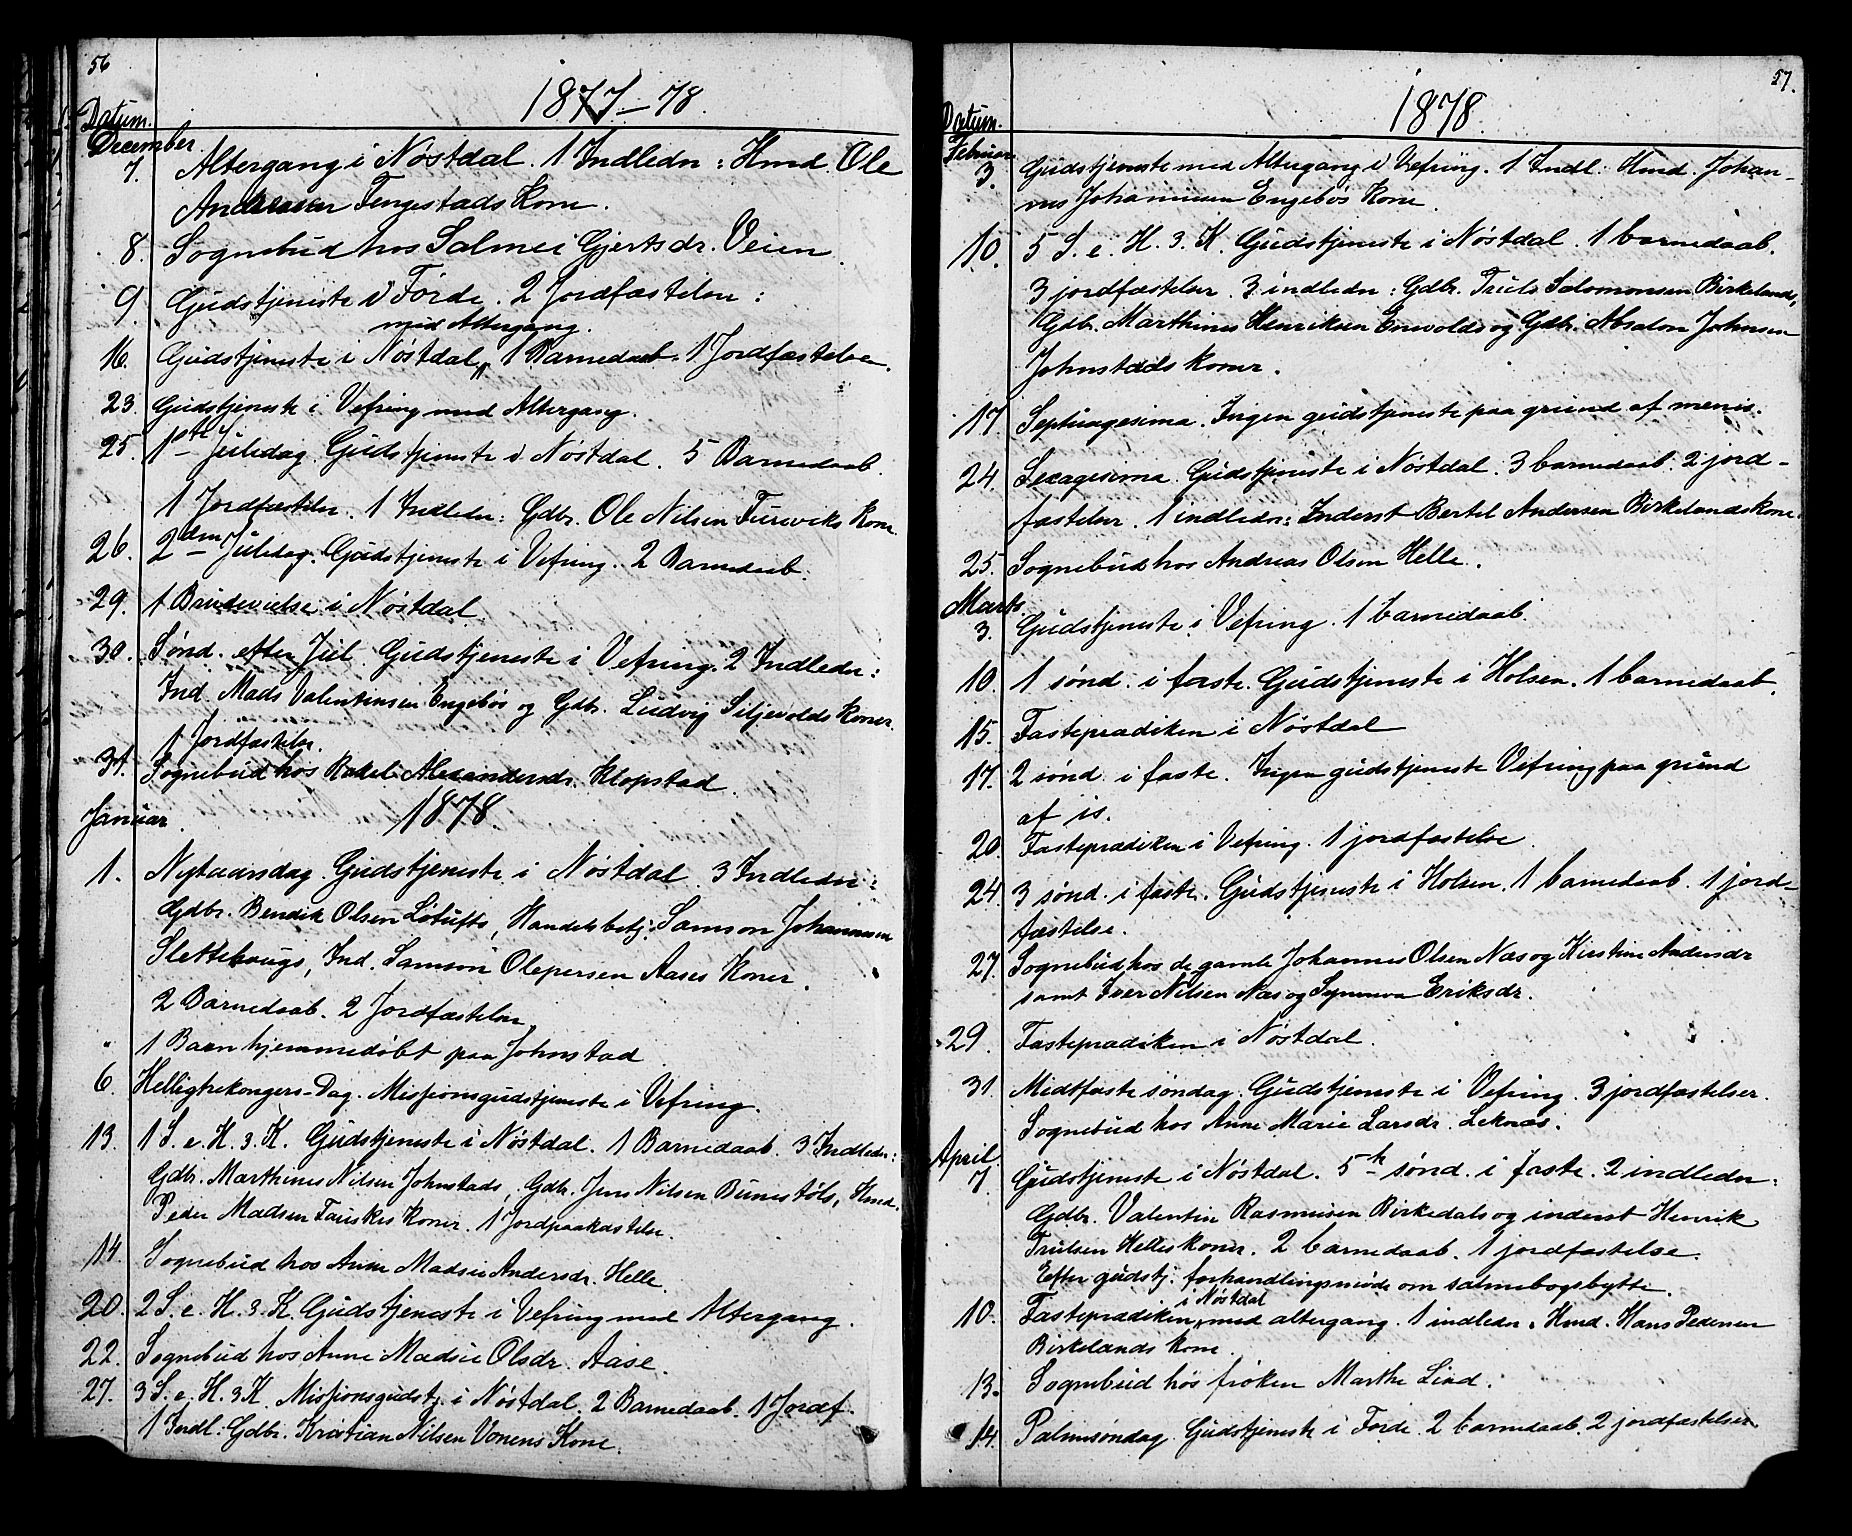 56
1877-78.
Datum.
December.
7. Altergang i Nøstdal. 1 Indledn: Hmd. Ole
Andreasen Fengestads Kone.
8. Sognebud hos Salmei Gjertsdr. Veien.
9. Gudstjeneste i Førde. 2 Jordfæstelser:
med Altergang.
16. Gudstjeneste i Nøstdal 1 Barnedaab. 1 Jordfæstelse.
23. Gudstjeneste i Vefring med Altergang.
25. 1ste Juledag. Gudstjeneste i Nøstdal. 5 Barnedaab.
1 Jordfæstelse. 1 Indledn: Gdbr. Ole Nilsen Fureviks Kone.
26. 2den Juledag. Gudstjeneste i Vefring. 2 Barnedaab.
29. 1 Brudevielse i Nøstdal
30. Sønd. efter Jul. Gudstjeneste i Vefring. 2 Indledn:
Ind. Mads Valentinsen Engebøs og Gdbr. Ludvig Siljevolds Koner.
1 Jordfæstelse.
31. Sognebud hos Rakel Alexandersdr. Klopstad.
1878
Januar.
1. Nytaarsdag. Gudstjeneste i Nøstdal. 3 Indledn:
Gdbr. Bendik Olsen Løtufts, Handelsbetj. Samson Johannesen
Slettehaugs, Ind. Samson Olepersen Aases Koner.
2 Barnedaab. 2 Jordfæstelser.
" 1 Barn hjemmedøbt paa Johnstad
6. Helligtrekongers-Dag. Missionsgudstjeneste i Vefring.
13. 1 S. e. H. 3. K. Gudstjeneste i Nøstdal. 1 Barnedaab. 3 Indledn:
Gdbr. Marthinus Nilsen Johnstads, Gdbr. Jens Nilsen Bunestøls, Hmd.
Peder Madsen Fauskes Koner. 1 Jordpaakastelse.
14. Sognebud hos Anne Madsie Andersdr. Helle.
20. 2 S. e. H. 3. K. Gudstjeneste i Vefring med Altergang.
22. Sognebud hos Anne Madsie Olsdr. Aase.
27. 3 S. e. H. 3 K. Missionsgudstj. i Nøstdal. 2 Barnedaab. 1 Jordf.
1 Indl: Gdbr. Kristian Nilsen Vonens Kone.
57.
1878.
Datum.
Februar
3. Gudstjeneste med Altergang i Vefring. 1 Indl: Hmd. Johan-
nes Johannesen Engebøs Kone.
10. 5 S. e. H. 3. K. Gudstjeneste i Nøstdal. 1 barnedaab.
3 jordfæstelser. 3 indledn: Gdbr. Truls Salomonsen Birkelands,
Gdbr. Marthinus Henriksen Envolds og Gdbr. Absalon Johnsen
Johnstads koner.
17 Septuagesima. Ingen gudstjeneste paa grund af menis.
24. Sexagesima. Gudstjeneste i Nøstdal. 3 barnedaab. 2 jord-
fæstelser. 1 indledn: Inderst Bertel Andersen Birkelands kone.
25. Sognebud hos Andreas Olsen Helle.
Marts
3. Gudstjeneste i Vefring. 1 barnedaab.
10. 1 sønd. i faste. Gudstjeneste i Holsen. 1 barnedaab.
15. Fasteprædiken i Nøstdal
17. 2 sønd. i faste. Ingen gudstjeneste Vefring paa grund
af is.
20. Fasteprædiken i Vefring. 1 jordfæstelse.
24. 3 sønd. i faste. Gudstjeneste i Holsen. 1 barnedaab. 1 jord-
fæstelse.
27. Sognebud hos de gamle Johannes Olsen Næs og Kirstine Andersdr
samt Iver Nilsen Næs og Synneva Eriksdr.
29. Fasteprædiken i Nøstdal.
31 Midtfaste søndag. Gudstjeneste i Vefring. 3 jordfæstelser.
Sognebud hos Anne Marie Larsdr. Leknæs.
April.
7 Gudstjeneste i Nøstdal. 5te sønd. i faste. 2 indledn:
Gdbr. Valentin Rasmusen Birkedals og inderst Henrik
Trulsen Helles koner. 2 barnedaab. 1 jordfæstelse.
Efter gudstj. forhandlingsmøde om salmebogsbytte.
i Nøstdal
10. Fasteprædiken, med altergang. 1 indledn: Hmd. Hans Pedersen
Birkelands kone.
13. Sognebud hos frøken Marthe Lind.
14. Palmesøndag. Gudstjeneste i Førde. 2 barnedaab. 2 jordfæstelser